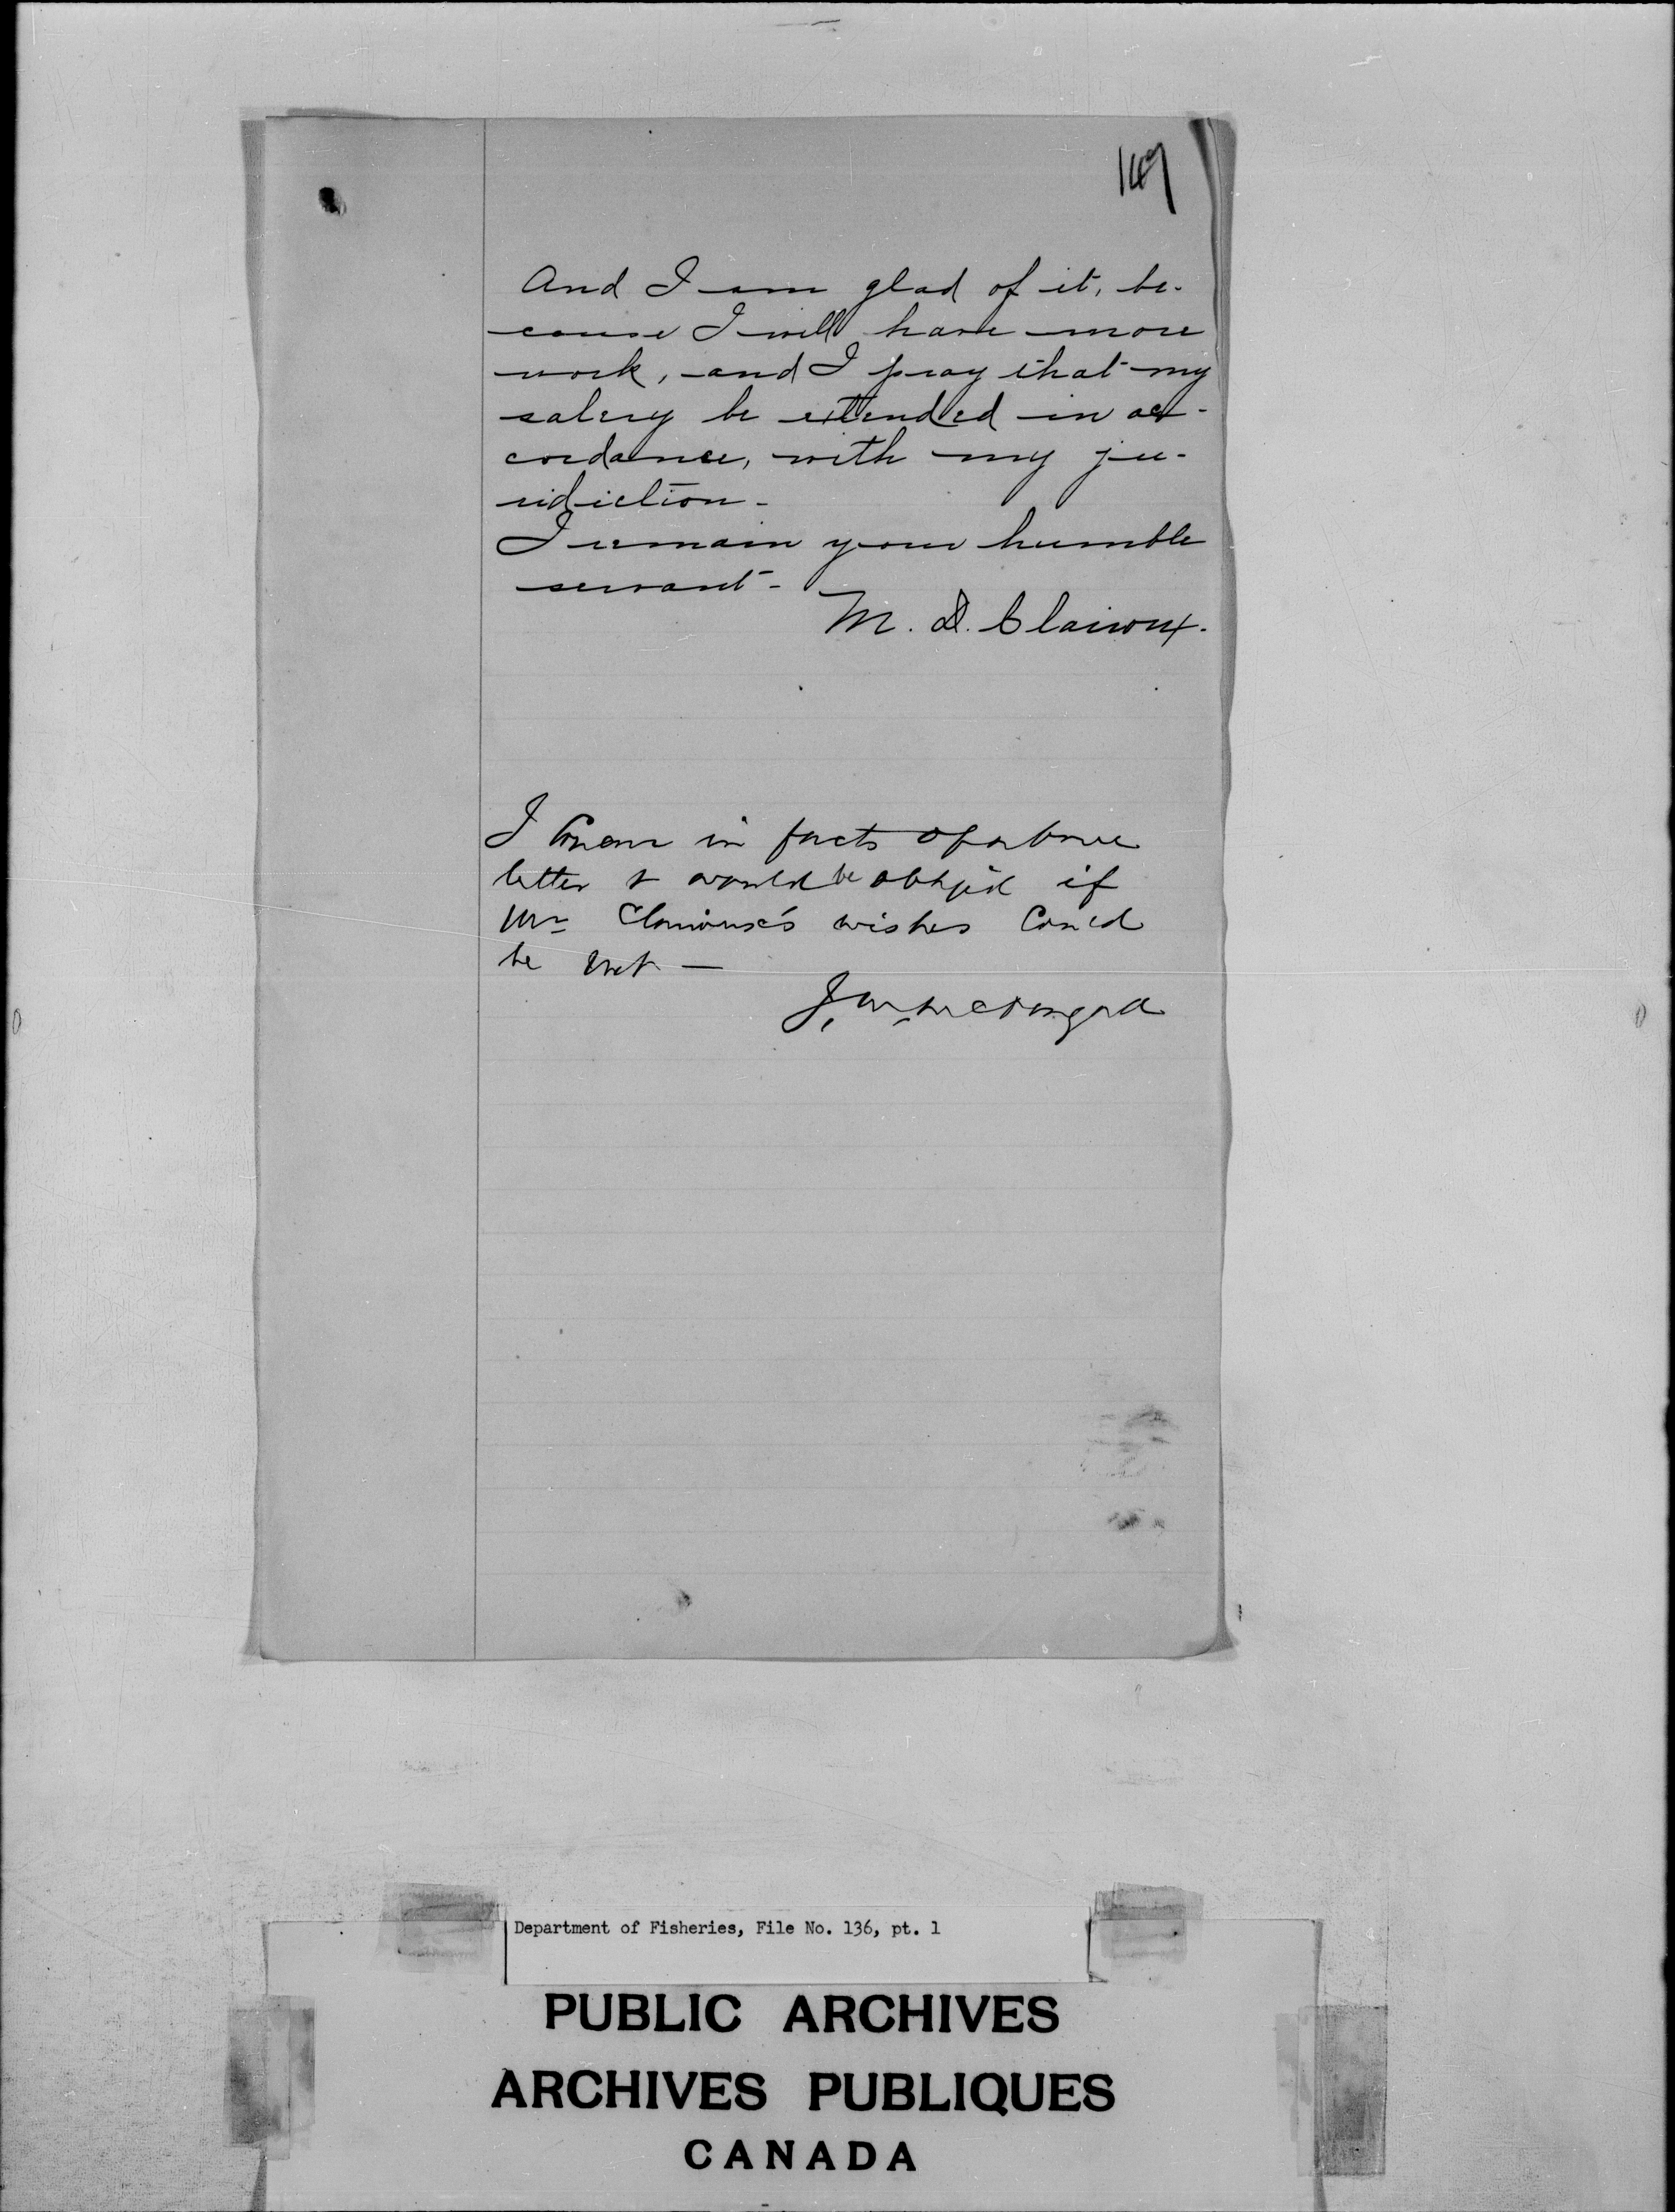 147
And I am glad of it, be-
cause I will have more
work, and I pray that my
salery be extended in ac-
cordance, with my ju-
ridiction-
I remain your humble
servant-
M. D. Clairoux.
I know in facts of above
letter & would be obliged if
Mr Clairoux's wishes could
be met —
J. W. McDougald
Department of Fisheries, File No. 136, pt. 1
PUBLIC ARCHIVES
ARCHIVES PUBLIQUES
CANADA